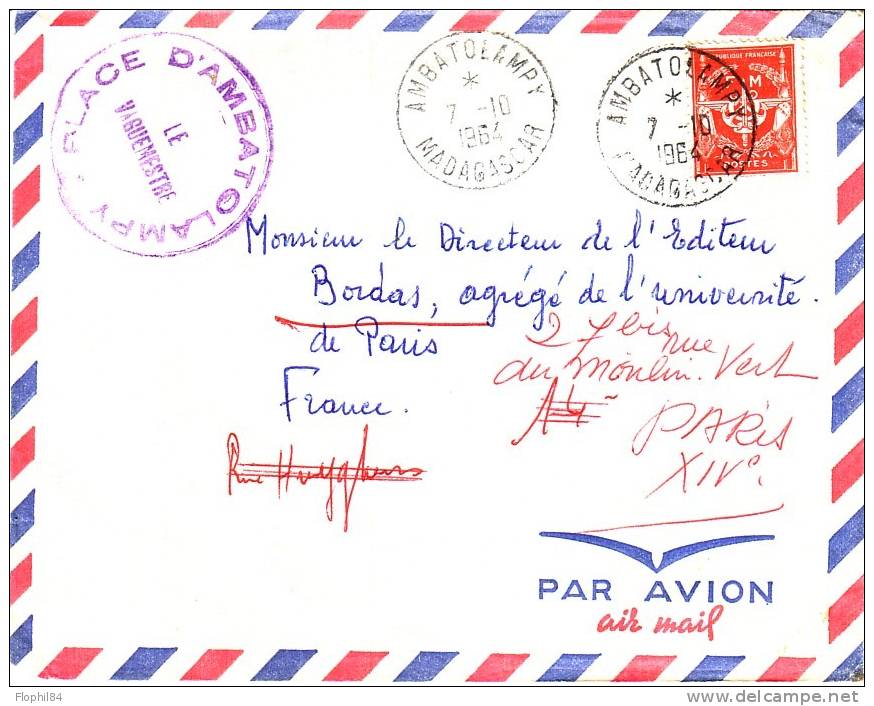 PLACE D'AMBATOLAMPY
LE
VAGUEMESTRE
AMBATOLAMPY
*
7 -10
1964
MADAGASCAR
AMBATOLAMPY
*
7 -10
1964
MADAGASCAR
REPUBLIQUE FRANÇAISE
F M
POSTES
Monsieur le Directeur de l'Editeur
Bordas, agrégé de l'université.
de Paris
France.
37 bis rue
du Moulin. Vert
14
PARIS
XIVe.
Rue Huyghens
PAR AVION
air mail
Flophil84
delcampe.net